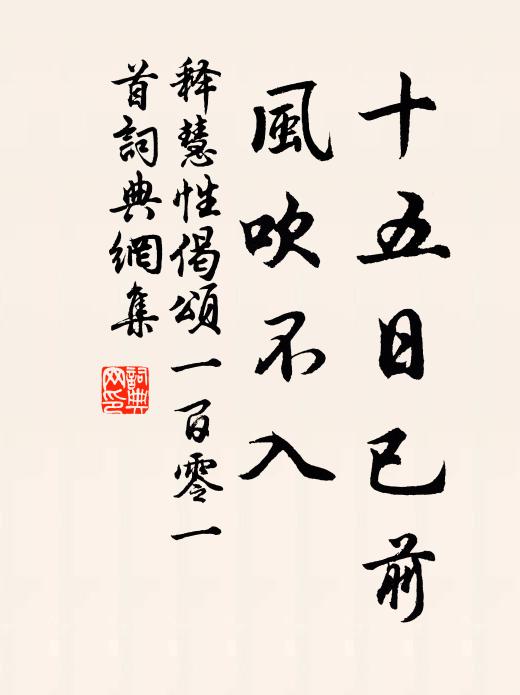 十五日已前
風吹不入
释慧性偈頌一百零一
首詞典網集
詞典网印